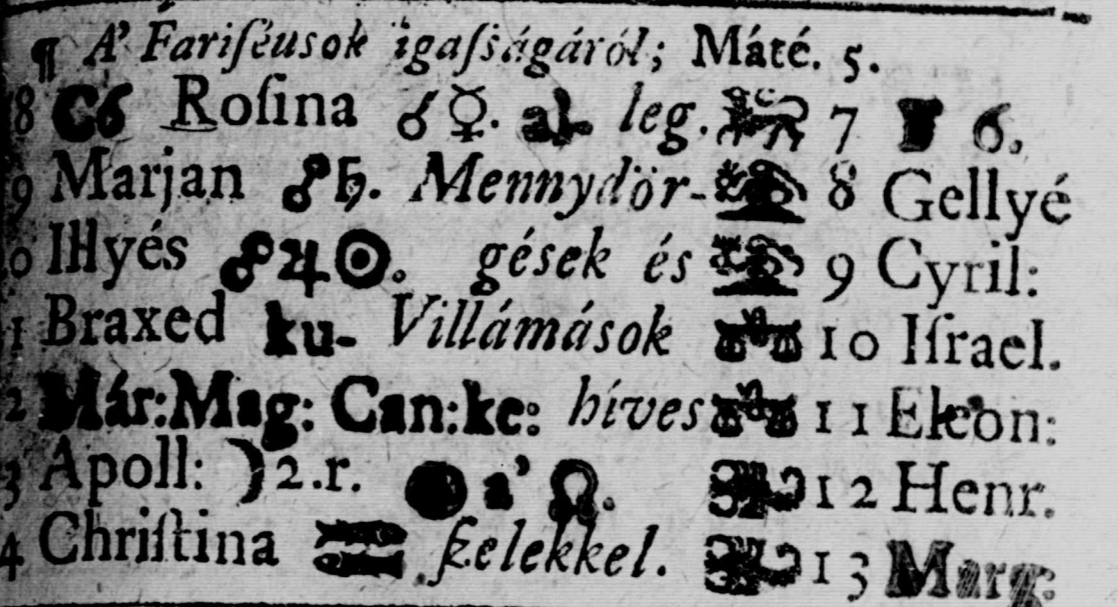 ¶ A' Fariſéusok igaſságáról; Máté. 5.
8 C6 Roſina ☌☿. al- leg. 7 F 6.
9 Marjan ☍♄. Mennydör- 8 Gellyé
0 Illyés ☍♃☉. gések és 9 Cyril:
1 Braxed ku- Villámások 10 Iſrael.
2 Már:Mag: Can:ke: híves 11 Eleon:
3 Apoll: ☽2.r. ● a' ☊. 12 Henr.
4 Chriſtina ſzelekkel. 13 Marg: